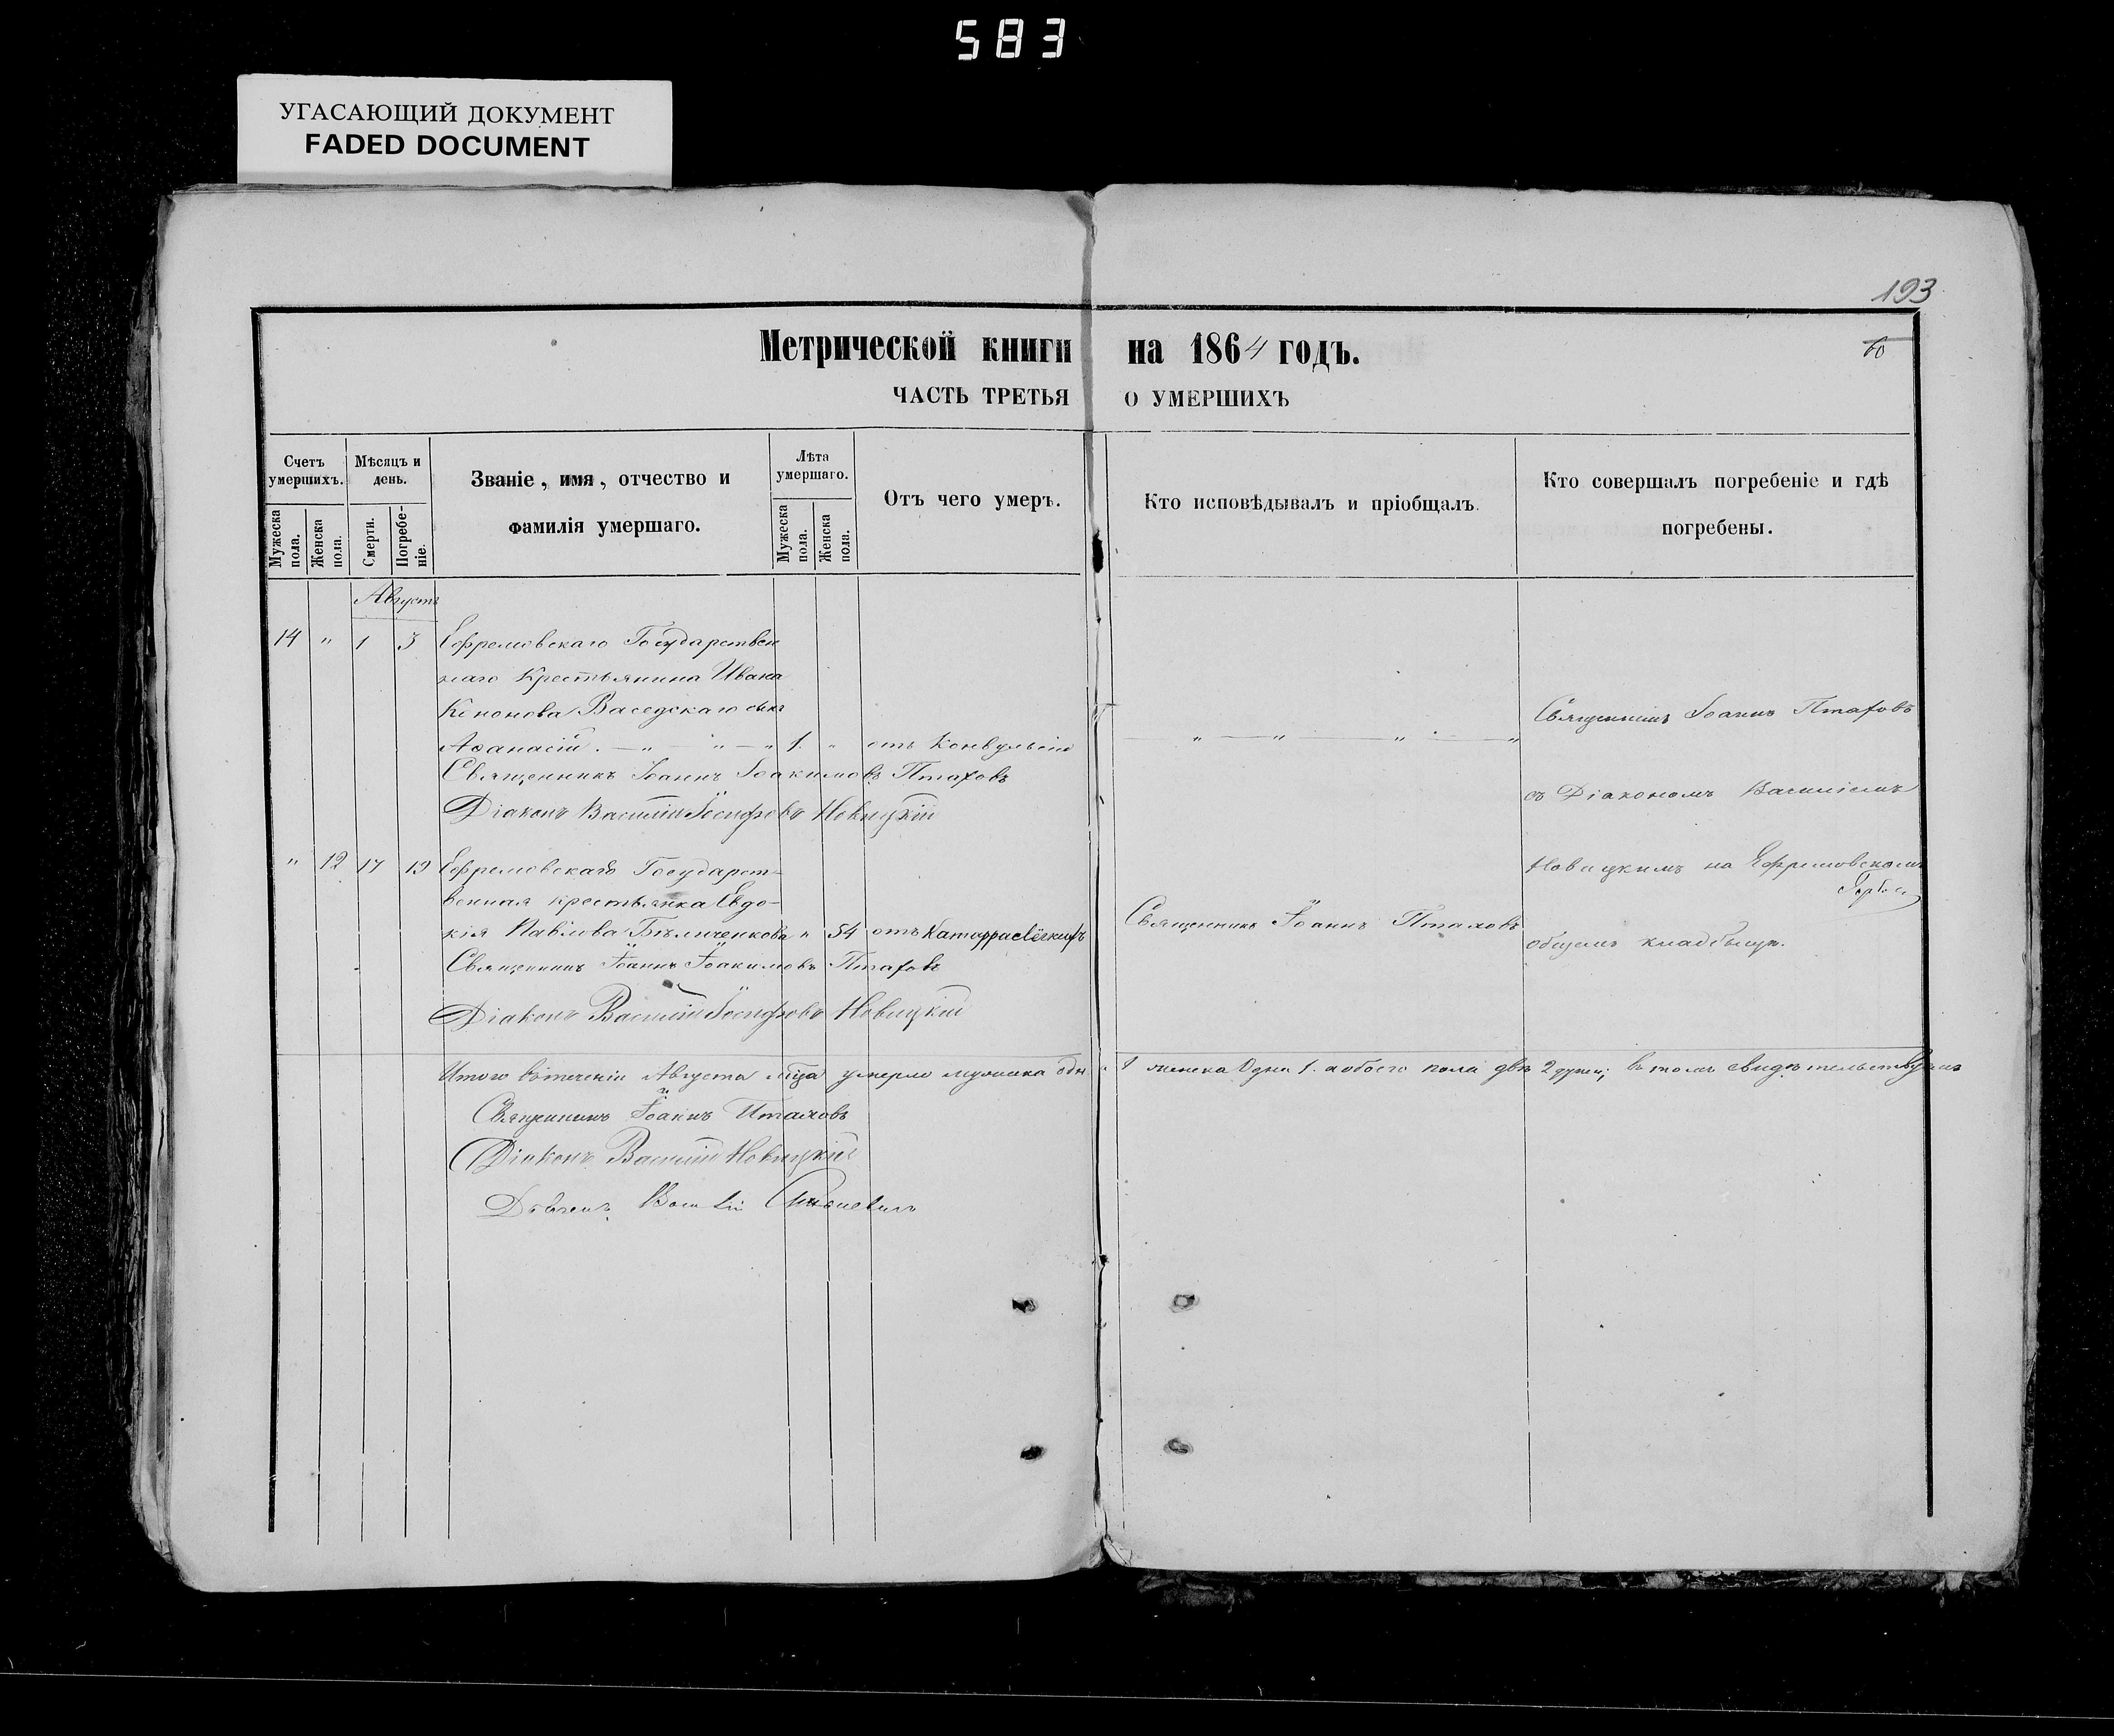 583
УГАСАЮЩИЙ ДОКУМЕНТ
FADED DOCUMENT
193
60
Метрической книги на 1864 годъ.
ЧАСТЬ ТРЕТЬЯ О УМЕРШИХЪ
Счетъ умершихъ.
Мужеска пола.
Женска пола.
Мѣсяцъ и день.
Смерти.
Погребеніе.
Званіе, имя, отчество и фамилія умершаго.
Лѣта умершаго.
Мужеска пола.
Женска пола.
Отъ чего умеръ.
Кто исповѣдывалъ и пріобщалъ.
Кто совершалъ погребеніе и гдѣ погребены.
Августъ
14 " 1 3 Ефремовскаго Государствен
наго Крестьянина Ивана
Кононова сынъ
Аѳанасій. — " — " — " 1. " отъ Конвульсіи
Священникъ Іоаннъ Іоакимовъ Птаховъ
Діаконъ Василій Іосифовъ Новицкій
Священникъ Іоаннъ Птаховъ
съ Діакономъ Василіемъ
Новицкимъ на Ефремовскомъ
общемъ кладбищѣ.
" 12 17 19 Ефремовскаго Государст-
венная крестьянка Евдо-
кія Павлова Бѣличенкова " 54 отъ
Священникъ Іоаннъ Птаховъ
Священникъ Іоаннъ Іоакимовъ Птаховъ
Діаконъ Василій Іосифовъ Новицкій
Итого въ теченіи Августа мца умерло мужеска 1 женска одна 1. а обоего пола двѣ 2 души; в томъ свидѣтельствуемъ
Священникъ Іоаннъ Птаховъ
Діаконъ Василій Новицкій